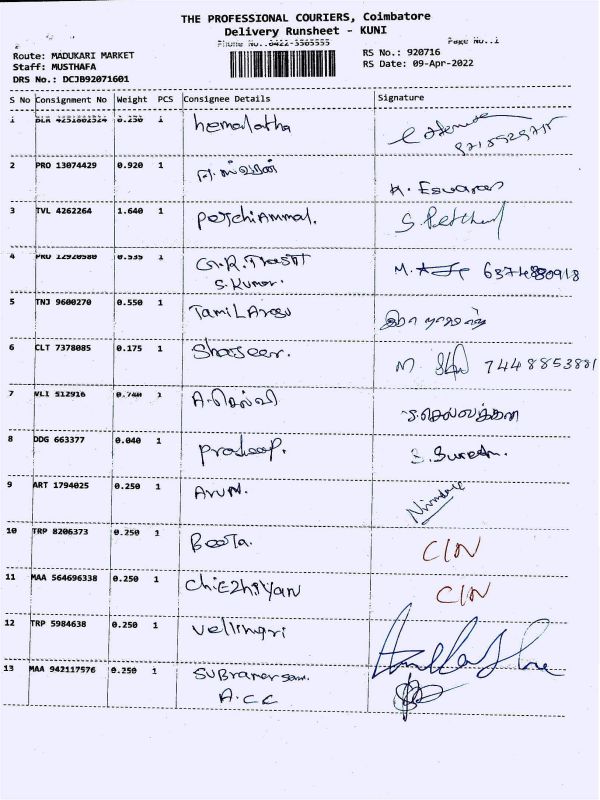 THE PROFESSIONAL COURIERS, Coimbatore
Delivery Runsheet - KUNI
Phone No.:0422-3585555
Page No.:1
Route: MADUKARI MARKET
RS No.: 920716
Staff: MUSTHAFA
RS Date: 09-Apr-2022
DRS No.: DCJB92071601
S No Consignment No Weight PCS Consignee Details Signature
1 BLR 4251802324 0.250 1 hemalatha
2 PRO 13074429 0.920 1 K. Eswaran
3 TVL 4262264 1.640 1 petchiAmmal.
4 PRO 12920580 0.535 1 G.R. M. 6374880918
S. Kumar.
5 TNJ 9600270 0.550 1 TamiLArasu
6 CLT 7378085 0.175 1 Shajeer. M 7448853881
7 VLI 512916 0.740 1 A. செல்வி
8 DDG 663377 0.040 1 pradeep. S. Suresh.
9 ART 1794025 0.250 1 Arun. Nirmala
10 TRP 8206373 0.250 1 Beeta. C/N
11 MAA 564696338 0.250 1 Ch.EZhiYan C/N
12 TRP 5984638 0.250 1 vellingri
13 MAA 942117576 0.250 1
A.C.C